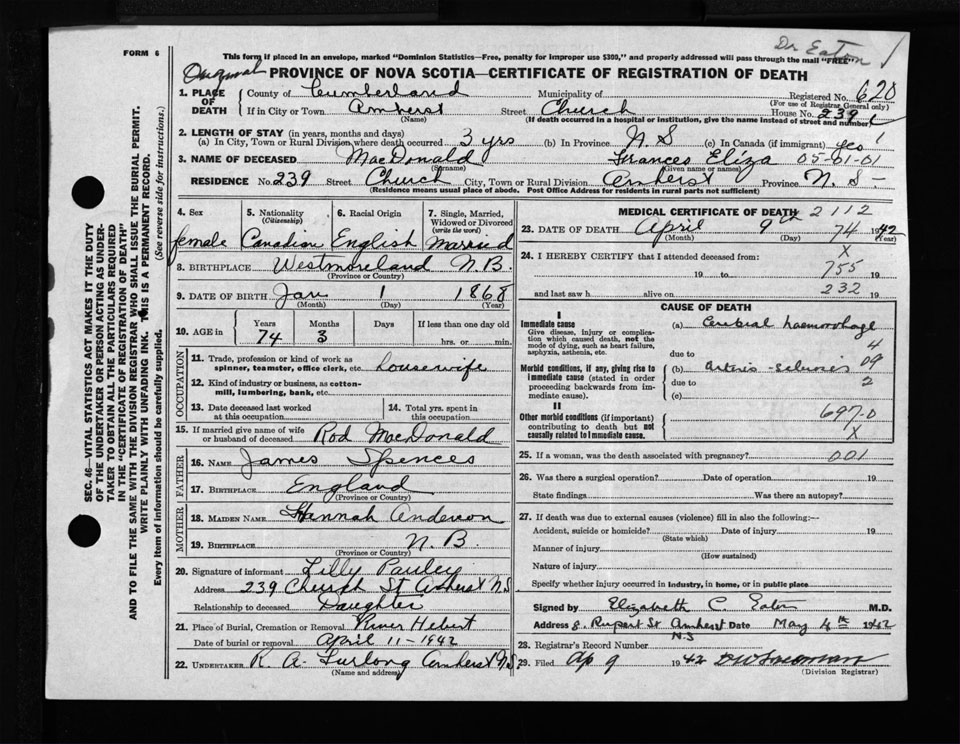 Dr Eaton
FORM 6
This form if placed in an envelope, marked "Dominion Statistics—Free, penalty for improper use $300," and properly addressed will pass through the mail "FREE"
Original PROVINCE OF NOVA SCOTIA—CERTIFICATE OF REGISTRATION OF DEATH
1. PLACE OF DEATH County of Cumberland Municipality of Registered No. 620
(For use of Registrar General only)
If in City or Town Amherst Street Church House No. 239
(Name) (If death occurred in a hospital or institution, give the name instead of street and number)
2. LENGTH OF STAY (in years, months and days)
(a) In City, Town or Rural Division where death occurred 3 yrs (b) In Province N. S (c) In Canada (if immigrant) yes
3. NAME OF DECEASED MacDonald Frances Eliza 05-01-01
(Surname) (Given name or names)
RESIDENCE No. 239 Street Church City, Town or Rural Division Amherst Province N. S-
(Residence means usual place of abode. Post Office Address for residents in rural parts not sufficient)
4. Sex 5. Nationality (Citizenship) 6. Racial Origin 7. Single, Married, Widowed or Divorced (write the word)
female Canadian English Married
8. BIRTHPLACE Westmoreland N.B.
(Province or Country)
9. DATE OF BIRTH Jan 1 1868
(Month) (Day) (Year)
10. AGE in Years Months Days If less than one day old
74 3 hrs. or min.
OCCUPATION
11. Trade, profession or kind of work as spinner, teamster, office clerk, etc. housewife
12. Kind of industry or business, as cotton-mill, lumbering, bank, etc.
13. Date deceased last worked at this occupation 14. Total yrs. spent in this occupation
15. If married give name of wife or husband of deceased Rod MacDonald
FATHER
16. NAME James Spences
17. BIRTHPLACE England
(Province or Country)
MOTHER
18. MAIDEN NAME Hannah Anderson
19. BIRTHPLACE N. B.
(Province or Country)
20. Signature of informant Lilly Pauley
Address 239 Church St Amherst N S
Relationship to deceased Daughter
21. Place of Burial, Cremation or Removal River Hebert
Date of burial or removal April 11-1942
22. UNDERTAKER K. A. Furlong Amherst N S
(Name and address)
MEDICAL CERTIFICATE OF DEATH 2112
23. DATE OF DEATH April 9th 74 1942
(Month) (Day) (Year)
24. I HEREBY CERTIFY that I attended deceased from: X
19 to 755 19
and last saw h alive on 232 19
CAUSE OF DEATH
I
Immediate cause (a) Cerebral haemorrhage
Give disease, injury or complication which caused death, not the mode of dying, such as heart failure, asphyxia, asthenia, etc.
due to 4
Morbid conditions, if any, giving rise to immediate cause (stated in order proceeding backwards from immediate cause). (b) 09
due to 2
(c)
II
Other morbid conditions (if important) contributing to death but not causally related to immediate cause. 697-0
X
25. If a woman, was the death associated with pregnancy? 001
26. Was there a surgical operation? Date of operation 19
State findings Was there an autopsy?
27. If death was due to external causes (violence) fill in also the following:—
Accident, suicide or homicide? Date of injury 19
(State which)
Manner of injury
(How sustained)
Nature of injury
Specify whether injury occurred in industry, in home, or in public place
Signed by Elizabeth C. Eaton M.D.
Address 8. Rupert St Amherst N.S Date May 4th 1942
28. Registrar's Record Number
29. Filed Ap 9 1942
(Division Registrar)
SEC. 46—VITAL STATISTICS ACT MAKES IT THE DUTY
OF THE UNDERTAKER OR PERSON ACTING AS UNDER-
TAKER TO OBTAIN ALL THE PARTICULARS REQUIRED
IN THE "CERTIFICATE OF REGISTRATION OF DEATH"
AND TO FILE THE SAME WITH THE DIVISION REGISTRAR WHO SHALL ISSUE THE BURIAL PERMIT.
WRITE PLAINLY WITH UNFADING INK. THIS IS A PERMANENT RECORD.
Every item of information should be carefully supplied. (See reverse side for instructions.)